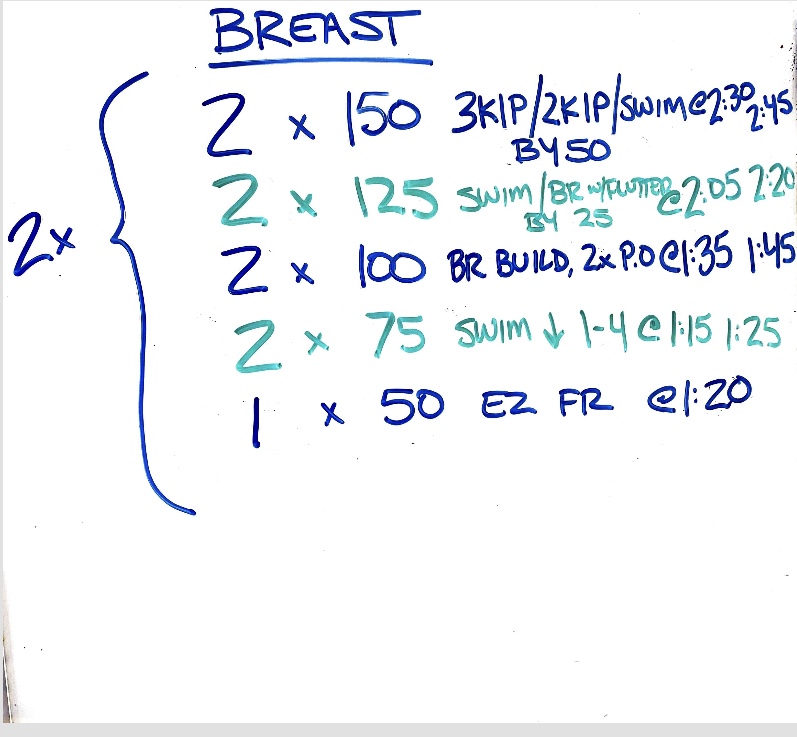 BREAST
2x
2 x 150 3K1P/2K1P/SWIM @2:30 2:45
BY 50
2 x 125 SWIM/BR W/FLUTTER @2:05 2:20
BY 25
2 x 100 BR BUILD, 2x P.O @1:35 1:45
2 x 75 SWIM ↓ 1-4 @1:15 1:25
1 x 50 EZ FR @1:20